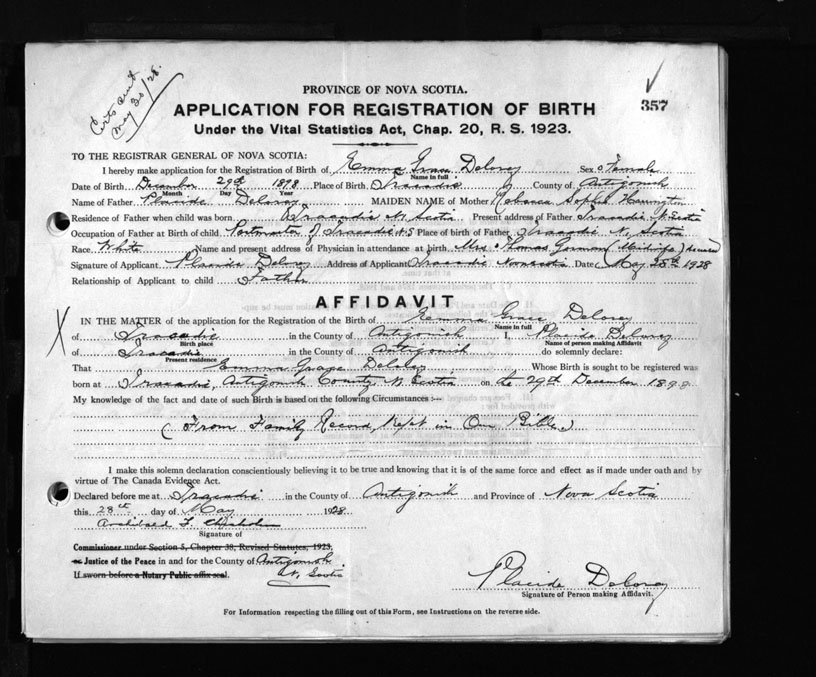 Certs sent
May 30/28.
357
PROVINCE OF NOVA SCOTIA.
APPLICATION FOR REGISTRATION OF BIRTH
Under the Vital Statistics Act, Chap. 20, R. S. 1923.
TO THE REGISTRAR GENERAL OF NOVA SCOTIA:
I hereby make application for the Registration of Birth of Emma Grace Delorey Sex Female
Name in full
Date of Birth December 29th 1898 Place of Birth Tracadie County of Antigonish
Month Day Year
Name of Father Placide Delorey MAIDEN NAME of Mother Rebecca Sophie Harrington
Residence of Father when child was born Tracadie N. Scotia Present address of Father Tracadie N. Scotia
Occupation of Father at Birth of child Postmaster Tracadie N S Place of birth of Father Tracadie N. Scotia
Race White Name and present address of Physician in attendance at birth Mrs Thomas (Midwife)
Signature of Applicant Placide Delorey Address of Applicant Tracadie Nova Scotia Date May 28th 1928
Relationship of Applicant to child Father
AFFIDAVIT
IN THE MATTER of the application for the Registration of the Birth of Emma Grace Delorey
Name in full
of Tracadie in the County of Antigonish I, Placide Delorey
Birth place Name of person making Affidavit
of Tracadie in the County of Antigonish do solemnly declare:
Present residence
That Emma Grace Delorey Whose Birth is sought to be registered was
born at Tracadie, Antigonish County, N. Scotia on the 29th December 1898
My knowledge of the fact and date of such Birth is based on the following Circumstances:—
(From Family Record, Kept in Our Bible.)
I make this solemn declaration conscientiously believing it to be true and knowing that it is of the same force and effect as if made under oath and by
virtue of The Canada Evidence Act.
Declared before me at Tracadie in the County of Antigonish and Province of Nova Scotia
this 28th day of May 1928
Archibald F. Chisholm
Signature of
Commissioner under Section 5, Chapter 38, Revised Statutes, 1923,
or Justice of the Peace in and for the County of Antigonish
If sworn before a Notary Public affix seal. N. Scotia
Placide Delorey
Signature of Person making Affidavit.
For Information respecting the filling out of this Form, see Instructions on the reverse side.